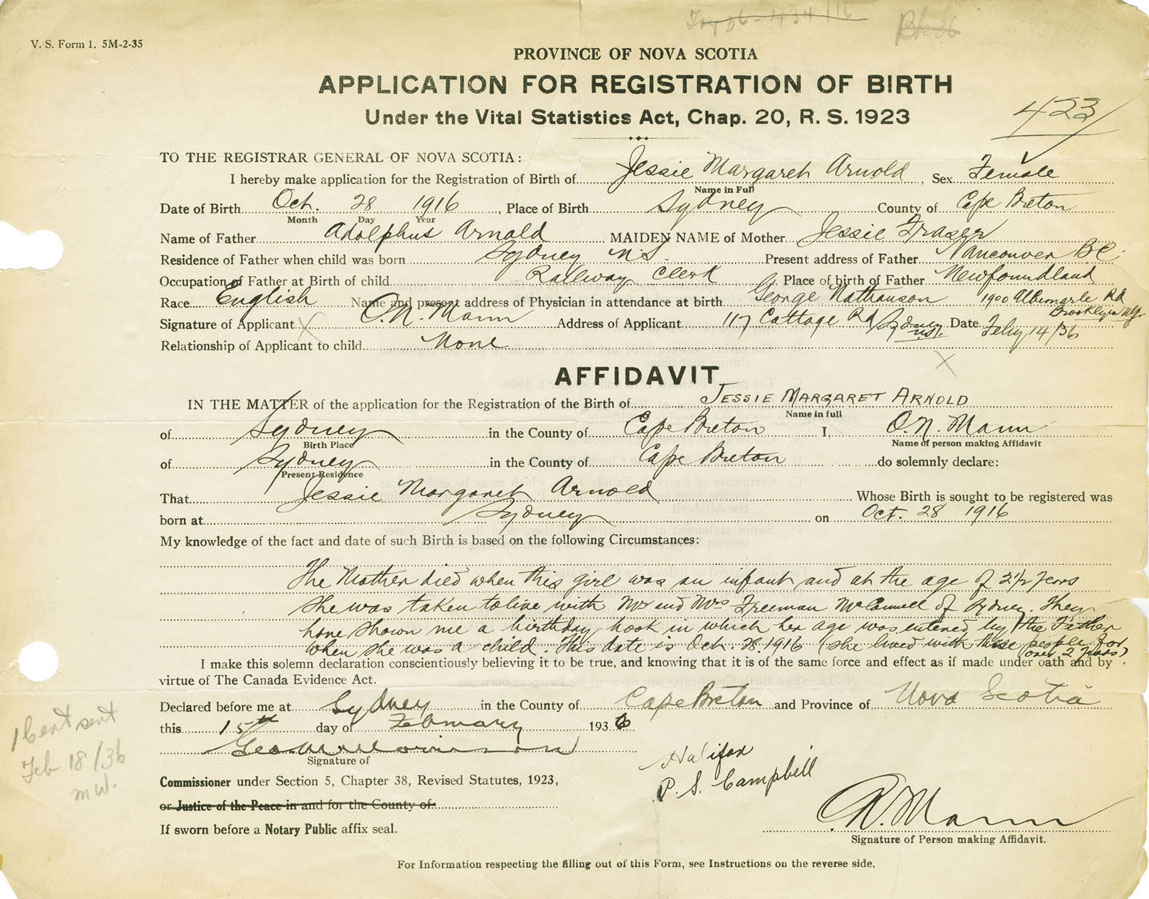 V. S. Form 1. 5M-2-35
PROVINCE OF NOVA SCOTIA
APPLICATION FOR REGISTRATION OF BIRTH
Under the Vital Statistics Act, Chap. 20, R. S. 1923
423
TO THE REGISTRAR GENERAL OF NOVA SCOTIA:
I hereby make application for the Registration of Birth of Jessie Margaret Arnold, Sex Female
Name in Full
Date of Birth Oct. 28 1916, Place of Birth Sydney County of Cape Breton
Month Day Year
Name of Father Adolphus Arnold MAIDEN NAME of Mother Jessie Fraser
Residence of Father when child was born Sydney N.S. Present address of Father Vancouver B.C.
Occupation of Father at Birth of child Railway Clerk Place of birth of Father Newfoundland
Race English Name and present address of Physician in attendance at birth George Nathanson 1900 Albemarle Rd Brooklyn N.Y.
Signature of Applicant X O. N. Mann Address of Applicant 117 Cottage Rd Sydney N.S. Date Feby 14/36
Relationship of Applicant to child None
X
AFFIDAVIT
IN THE MATTER of the application for the Registration of the Birth of JESSIE MARGARET ARNOLD
Name in full
of Sydney in the County of Cape Breton I, O. N. Mann
Birth Place Name of person making Affidavit
of Sydney in the County of Cape Breton do solemnly declare:
Present Residence
That Jessie Margaret Arnold Whose Birth is sought to be registered was
born at Sydney on Oct. 28 1916
My knowledge of the fact and date of such Birth is based on the following Circumstances:
The Mother died when this girl was an infant and at the age of 2½ years
she was taken to live with Mr and Mrs Freeman McConnell of Sydney. They
have shown me a birthday book in which her age was entered by the Father
when she was a child. This date is Oct. 28. 1916 (she lived with these people for over 2 years)
I make this solemn declaration conscientiously believing it to be true, and knowing that it is of the same force and effect as if made under oath and by
virtue of The Canada Evidence Act.
Declared before me at Sydney in the County of Cape Breton and Province of Nova Scotia
this 15th day of February 1936
Signature of
Halifax
P. S. Campbell
1 Cert sent
Feb 18/36
mw.
Commissioner under Section 5, Chapter 38, Revised Statutes, 1923,
or Justice of the Peace in and for the County of
If sworn before a Notary Public affix seal.
O. N. Mann
Signature of Person making Affidavit.
For Information respecting the filling out of this Form, see Instructions on the reverse side.